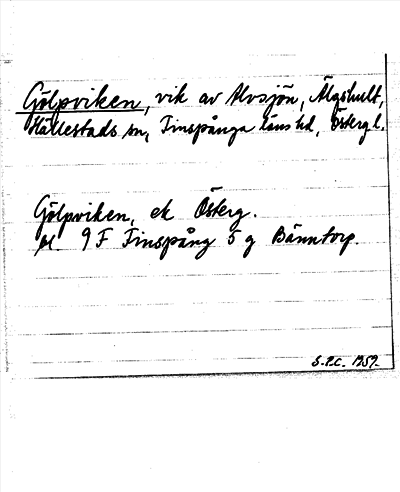 Gölpviken, vik av Alvsjön, Älgshult,
Hällestads sn, Finspånga läns hd, Östergl.
Gölpviken, ek Österg.
bl. 9 F Finspång 5 g Bänntorp.
S.P.C. 1959.